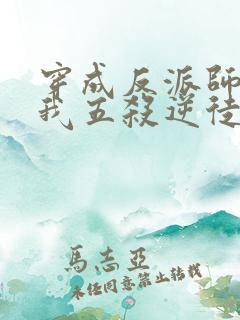 穿成反派師
我五殺逆徒
馬志亞
未經同意禁止轉載